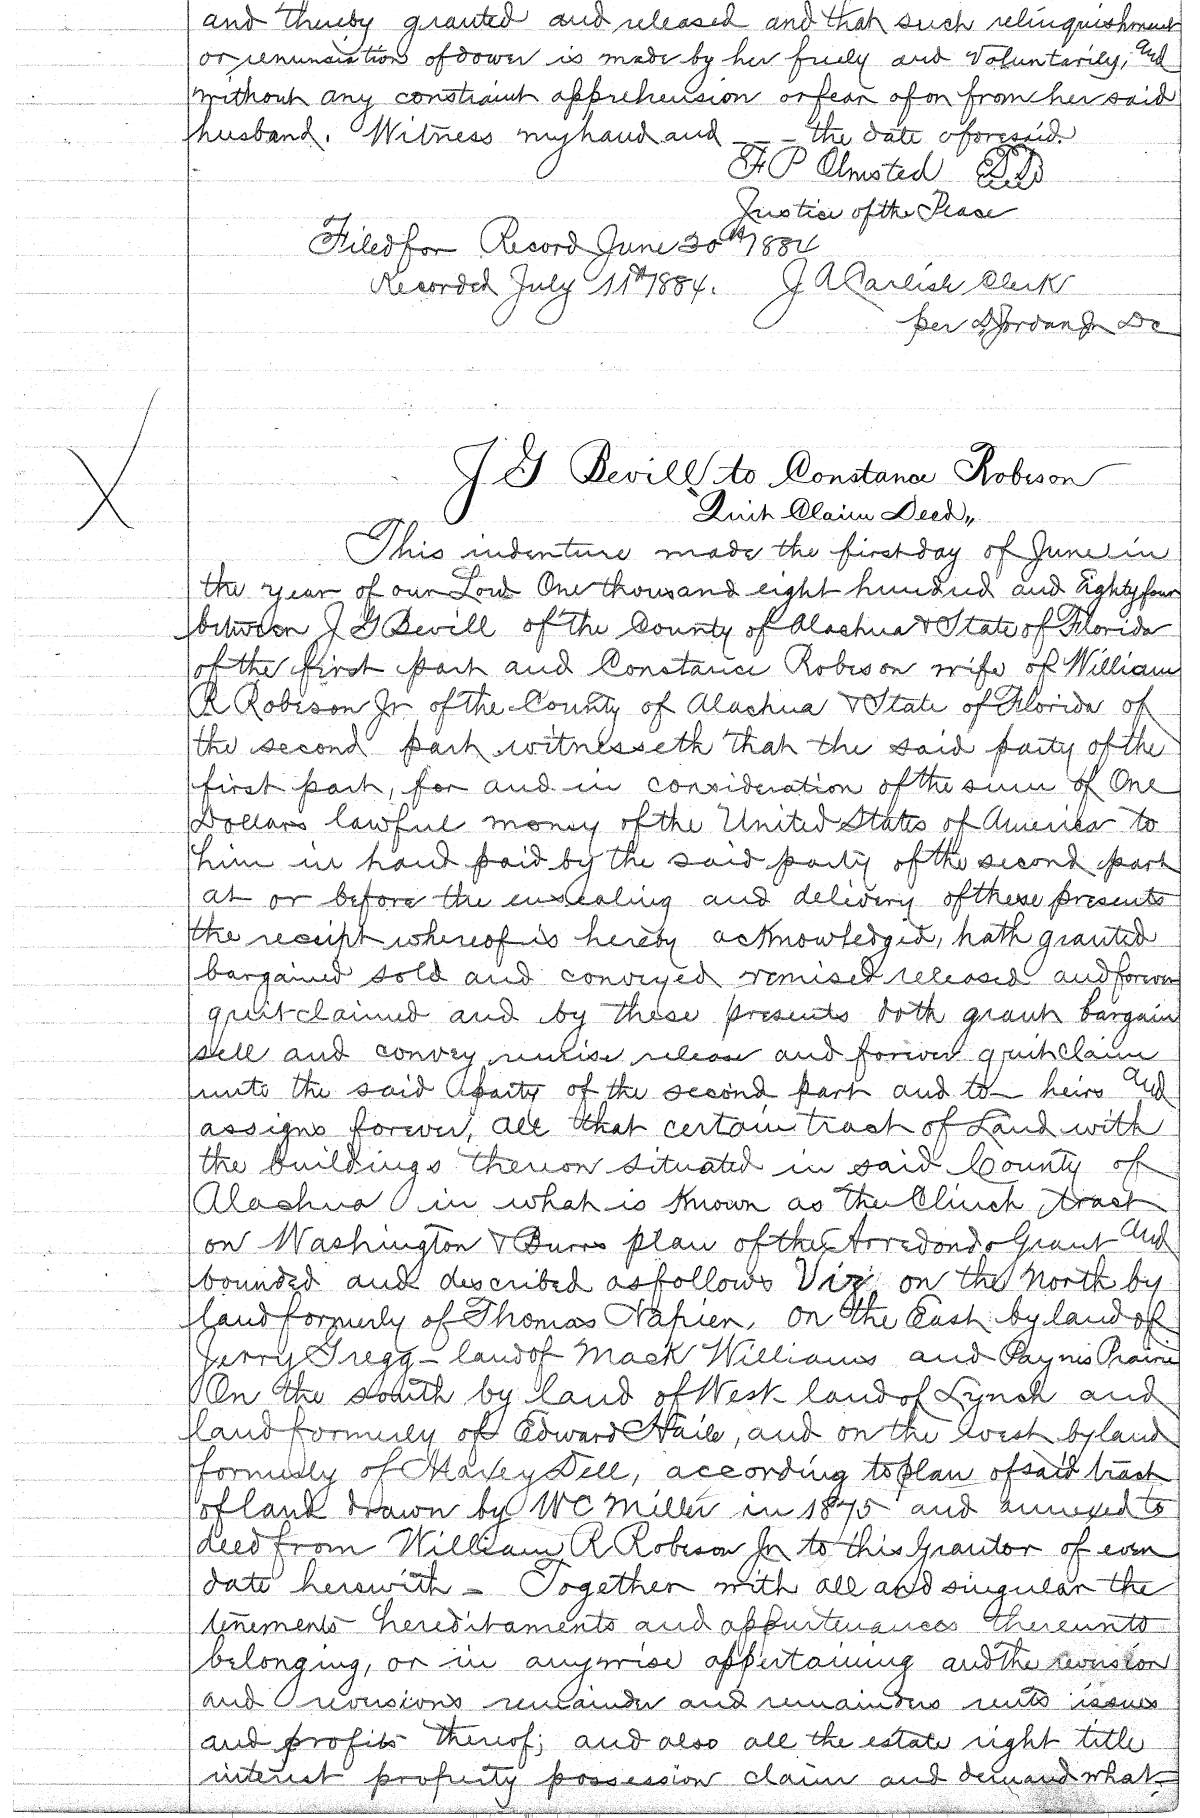 and thereby granted and released and that such relinquishment
or renunciation of dower is made by her freely and voluntarily, and
without any constraint apprehension or fear of or from her said
husband. Witness my hand and _ _ _ the date aforesaid.
F P Olmsted
Justice of the Peace
Filed for Record June 30th 1884
Recorded July 11th 1884. J A Carlisle Clerk
per D Jordan Jr Dc
J G Bevill to Constance Robeson
"Quit Claim Deed"
This indenture made the first day of June in
the year of our Lord One thousand eight hundred and Eighty four
between J G Bevill of the County of Alachua & State of Florida
of the first part and Constance Robeson wife of William
R Robeson Jr of the County of Alachua & State of Florida of
the second part witnesseth that the said party of the
first part, for and in consideration of the sum of One
Dollars lawful money of the United States of America to
him in hand paid by the said party of the second part
at or before the ensealing and delivery of these presents
the receipt whereof is hereby acknowledged, hath granted
bargained sold and conveyed remised released and forever
quitclaimed and by these presents doth grant bargain
sell and convey remise release and forever quitclaim
unto the said party of the second part and to heirs and
assigns forever, all that certain tract of Land with
the buildings thereon situated in said County of
Alachua in what is known as the Clinch tract
on Washington & Burrs plan of the Arredondo Grant and
bounded and described as follows Viz on the North by
land formerly of Thomas Napier, on the East by land of
Jerry Gregg - land of Mack Williams and Paynes Prairie
On the south by land of West land of Lynch and
land formerly of Edward Haile, and on the west by land
formerly of Maxey Dell, according to plan of said tract
of land drawn by W C Miller in 1875 and annexed to
deed from William R Robeson Jr to this Grantor of even
date herewith - Together with all and singular the
tenements hereditaments and appurtenances thereunto
belonging, or in anywise appertaining and the reversion
and reversions remainder and remainders rents issues
and profits thereof; and also all the estate right title
interest property possession claim and demand what-